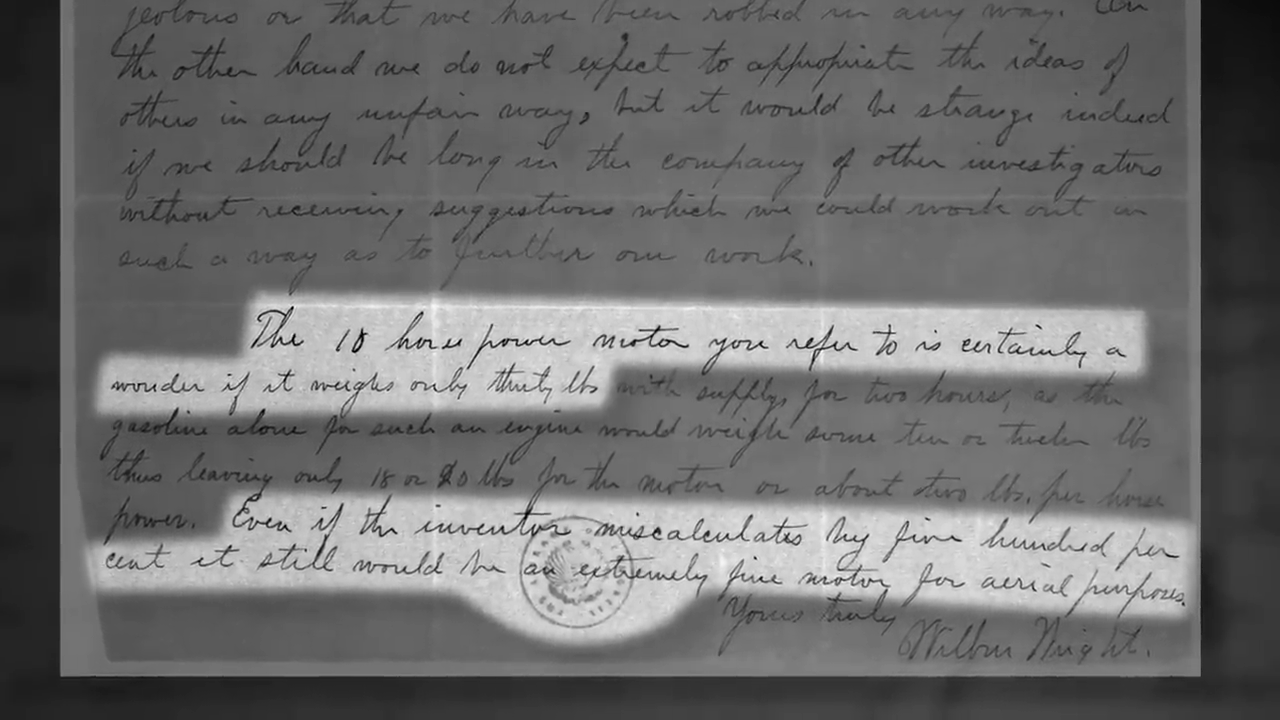 jealous or that we have been robbed in any way. On
the other hand we do not expect to appropriate the ideas of
others in any unfair way, but it would be strange indeed
if we should be long in the company of other investigators
without receiving suggestions which we could work out in
such a way as to further our work.
The 18 horse power motor you refer to is certainly a
wonder if it weighs only thirty lbs with supply for two hours, as the
gasoline alone for such an engine would weigh some ten or twelve lbs
thus leaving only 18 or 20 lbs for the motor or about two lbs. per horse
power. Even if the inventor miscalculates by five hundred per
cent it still would be an extremely fine motor for aerial purposes.
Yours truly
Wilbur Wright.